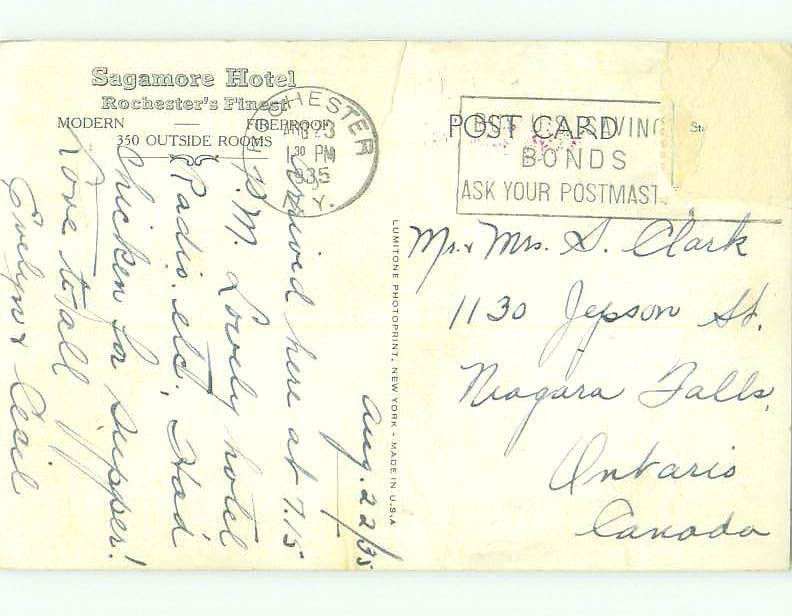 Sagamore Hotel
Rochester's Finest
MODERN — FIREPROOF
350 OUTSIDE ROOMS
ROCHESTER
AUG 23
1 30 PM
1935
N.Y.
POST CARD
BUY U.S. SAVING
BONDS
ASK YOUR POSTMAST
Aug. 22/35
Arrived here at 7.15
P.M. Lovely hotel
Radio. etc. Had
chicken for supper!
Love to all
Evelyn & Cecil
LUMITONE PHOTOPRINT, NEW YORK - MADE IN U.S.A
Mr. & Mrs. S. Clark
1130 Jepson St.
Niagara Falls,
Ontario
Canada